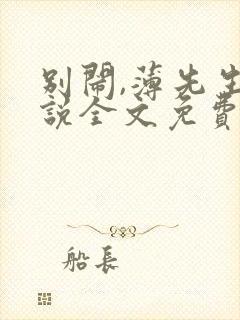 別鬧,薄先生
說全文免費
船長